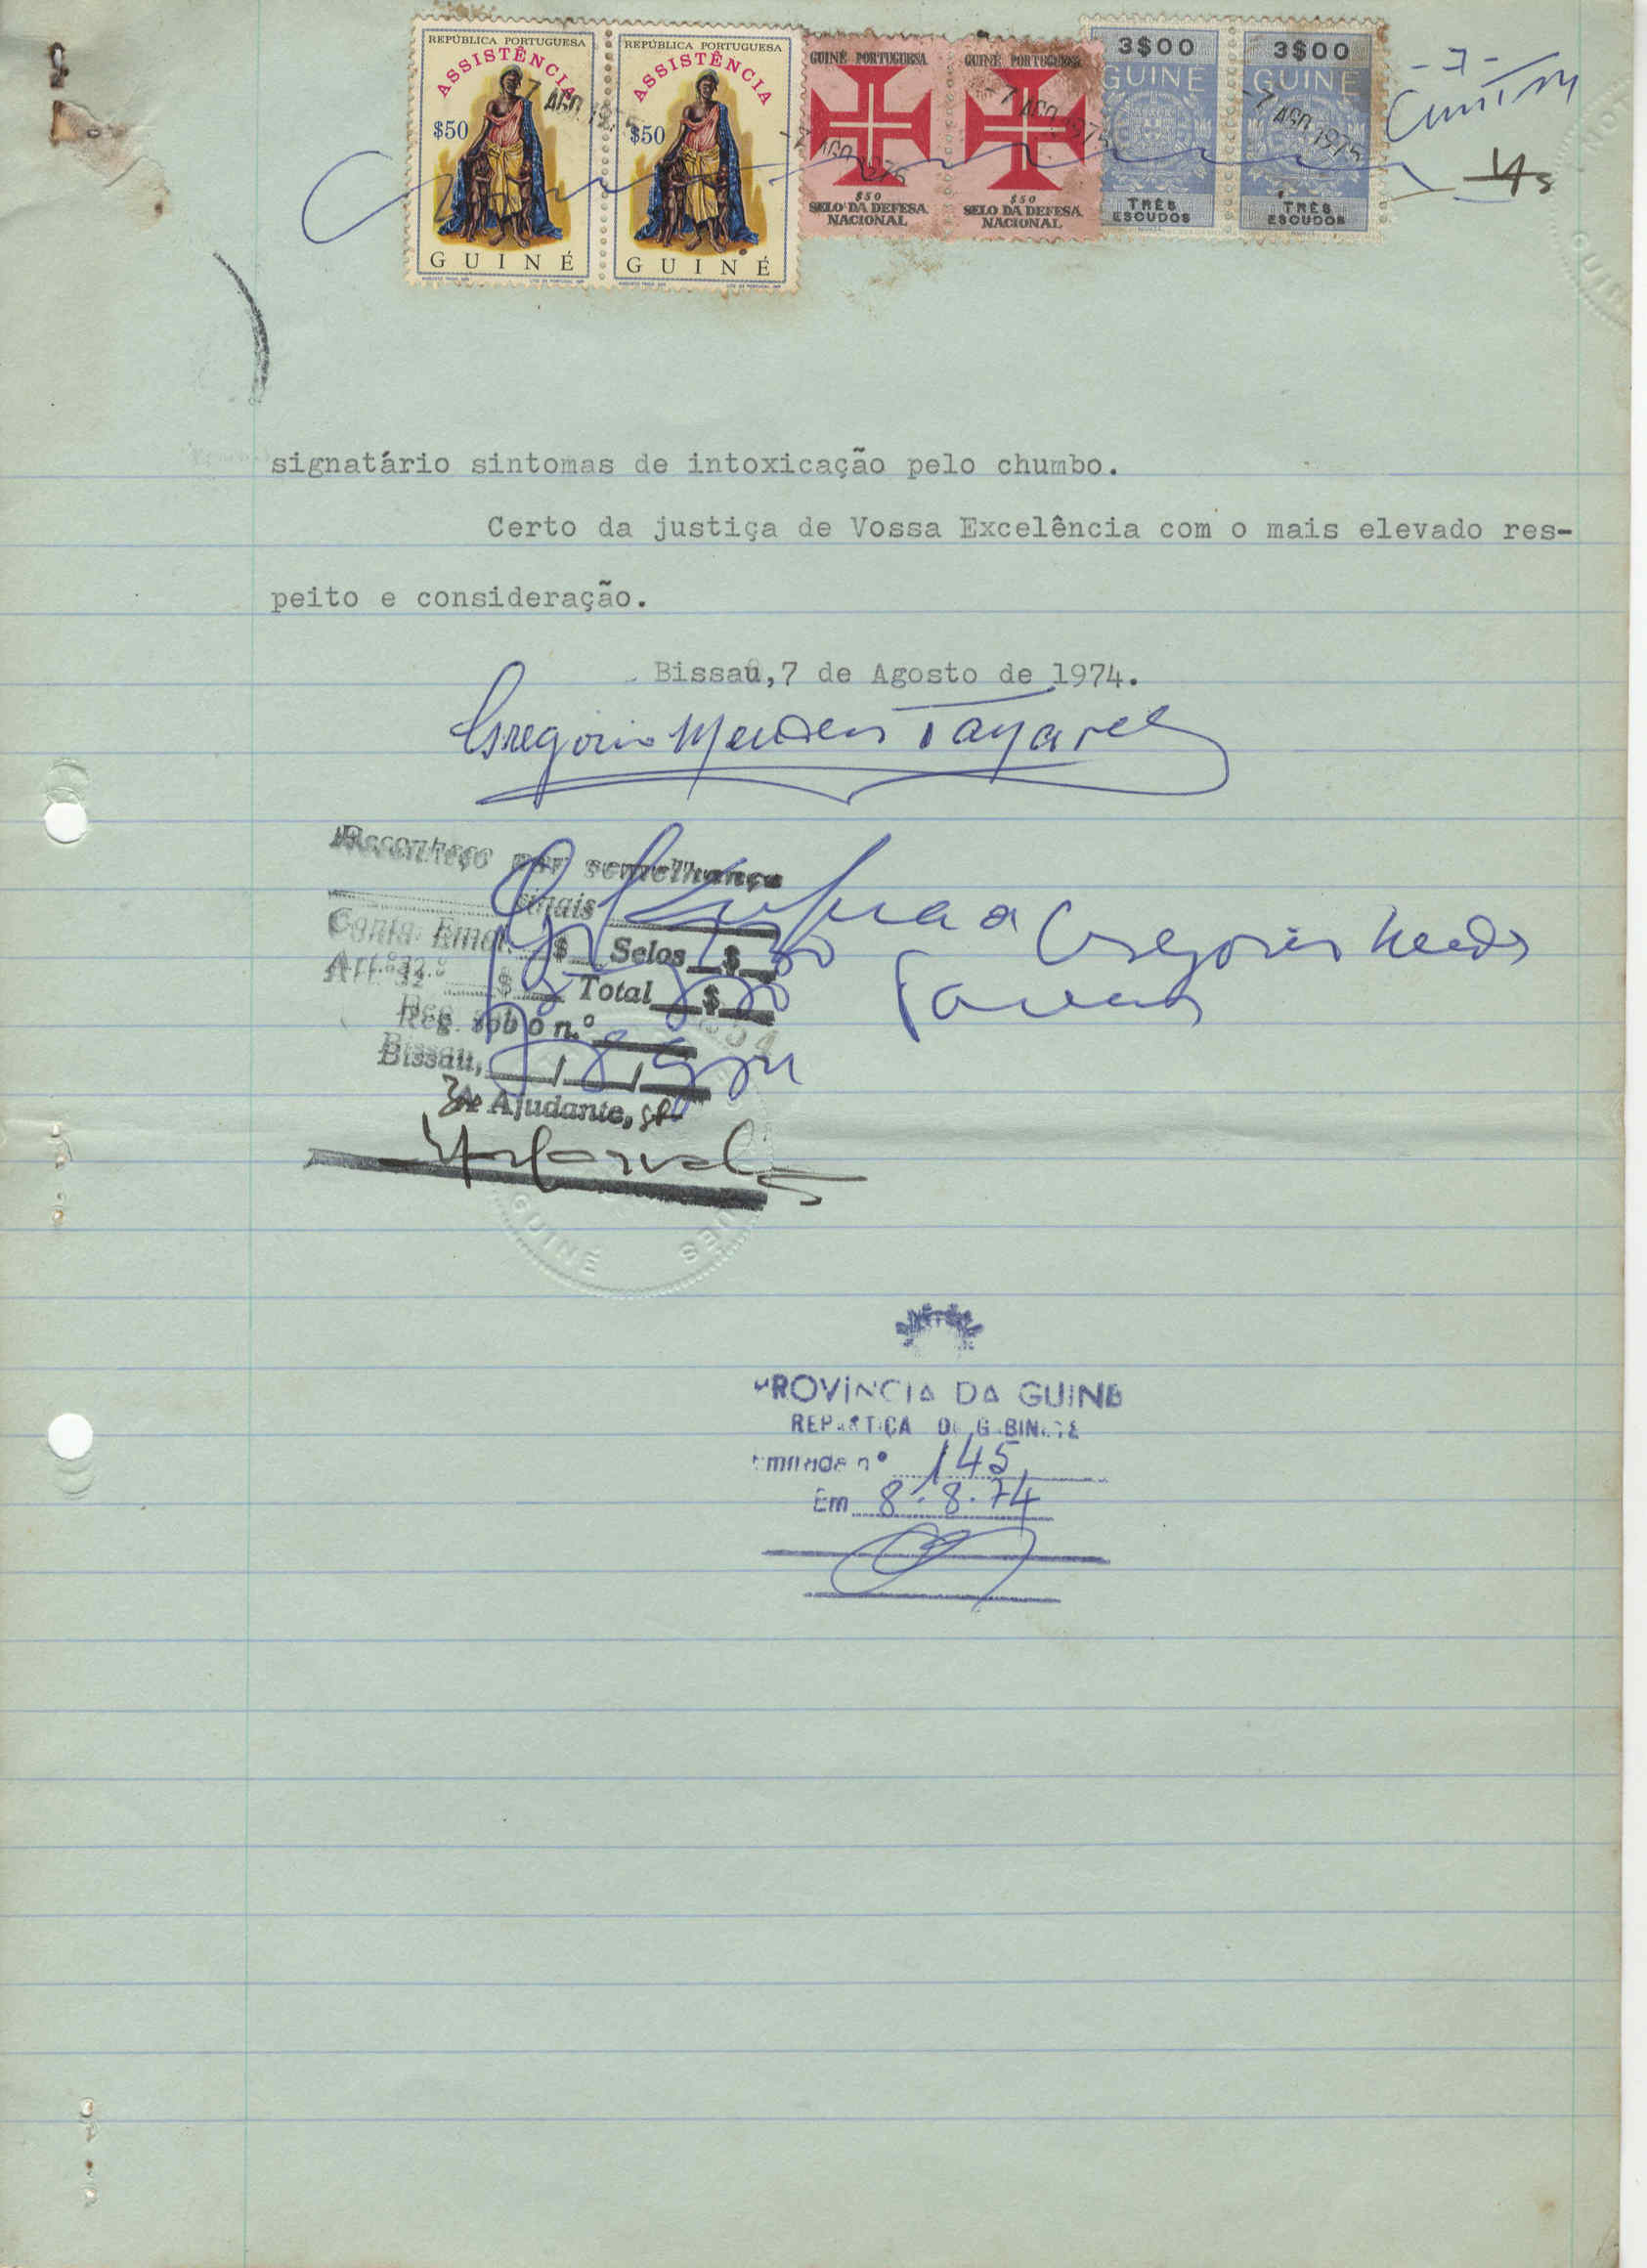 REPÚBLICA PORTUGUESA
ASSISTÊNCIA
$50
GUINÉ
REPÚBLICA PORTUGUESA
ASSISTÊNCIA
$50
GUINÉ
GUINÉ PORTUGUESA
$50
SELO DA DEFESA
NACIONAL
GUINÉ PORTUGUESA
$50
SELO DA DEFESA
NACIONAL
3$00
GUINÉ
TRÊS
ESCUDOS
3$00
GUINÉ
TRÊS
ESCUDOS
-7-
signatário sintomas de intoxicação pelo chumbo.
Certo da justiça de Vossa Excelência com o mais elevado res-
peito e consideração.
Bissau,7 de Agosto de 1974.
Gregorio Mendes Tavares
Reconheço por semelhança
sinais
Conta: Emol. $ Selos $
Art.º 32.º $ Total $
Reg. sob o n.º
Bissau, / /
Ajudante,
GUINÉ
PROVÍNCIA DA GUINÉ
REPARTIÇÃO DO GABINETE
Entrada nº 145
Em 8.8.74